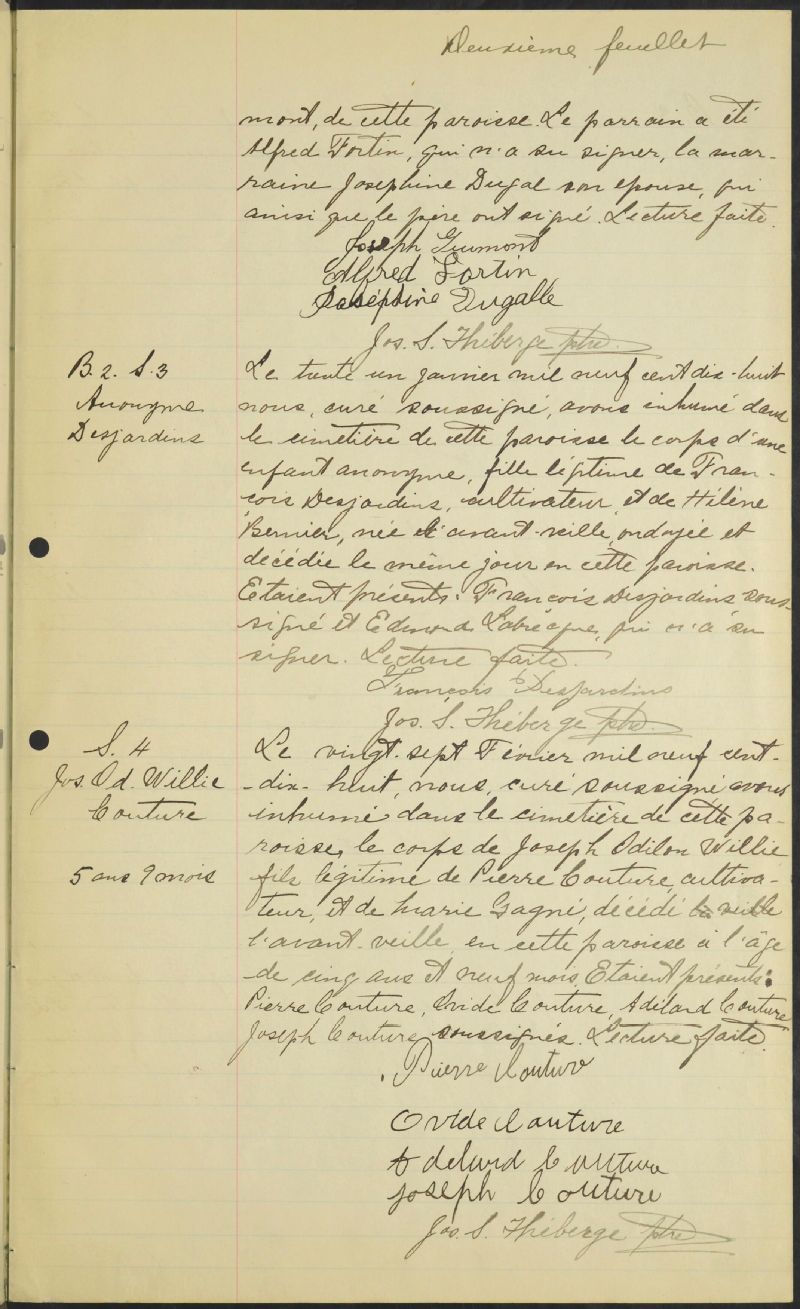 Deuxième feuillet
mont, de cette paroisse. Le parrain a été
Alfred Fortin, qui n'a su signer, la mar-
raine Josephine Dugal son epouse, qui
ainsi que le père ont signé. Lecture faite.
Joseph Guimont
Alfred Fortin
Joséphine Dugalle
Jos. S. Théberge ptre.
B. 2. S. 3
Anonyme
Desjardins
Le trente un janvier mil neuf cent dix-huit
nous, curé soussigné, avons inhumé dans
le cimetière de cette paroisse le corps d'une
enfant anonyme, fille légitime de Fran-
cois Desjardins, cultivateur, et de Hélène
Bernier, née l'avant-veille, ondoyée et
décédée le même jour en cette paroisse.
Etaient présents: Francois Desjardins sous-
signé et Edmond Labrecque, qui n'a su
signer. Lecture faite.
François Desjardins
Jos. S. Théberge ptre.
S. 4
Jos. Od. Willie
Couture
5 ans 9 mois
Le vingt-sept Février mil neuf cent-
-dix-huit, nous, curé soussigné avons
inhumé dans le cimetière de cette pa-
roisse, le corps de Joseph Odilon Willie
fils légitime de Pierre Couture, cultiva-
teur, et de Marie Gagné, décédé la veille
l'avant-veille, en cette paroisse à l'âge
de cinq ans et neuf mois. Etaient présents:
Pierre Couture, Ovide Couture, Adélard Couture
Joseph Couture soussignés. Lecture faite.
Pierre Couture
Ovide Couture
Adelard Couture
Joseph Couture
Jos. S. Théberge ptre